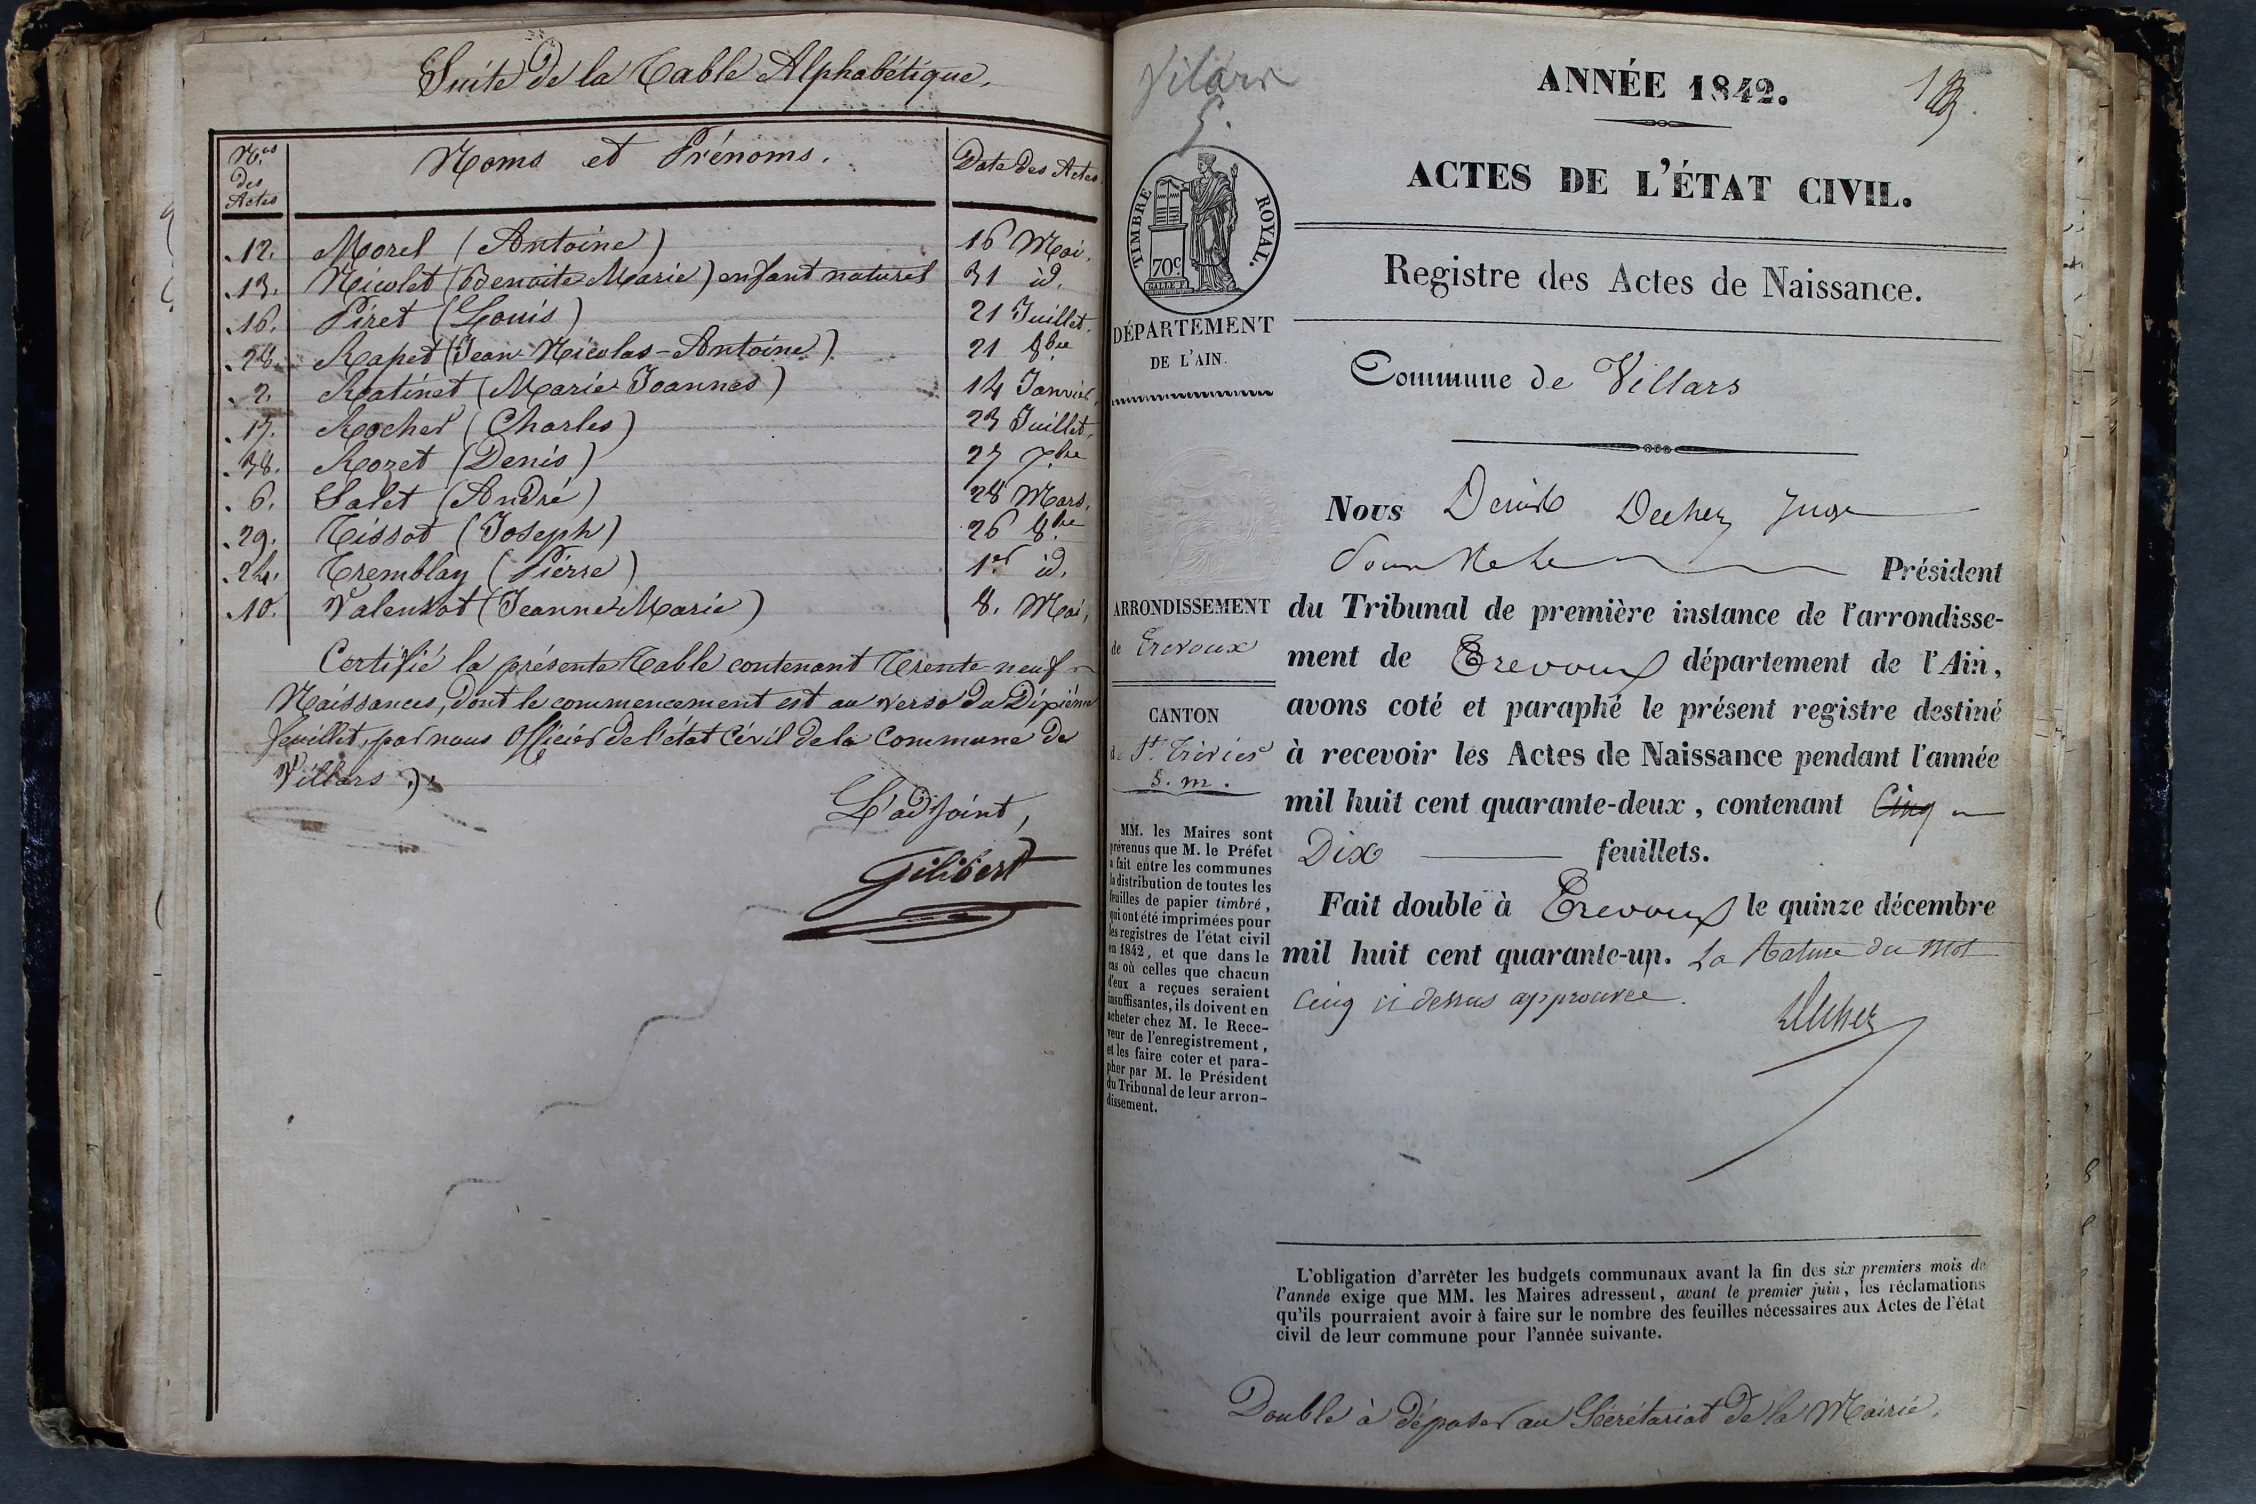 Suite de la Table Alphabétique.
Nos
des
Actes
Noms et Prénoms.
Date des Actes
12. Morel (Antoine) 16 Mai.
13. Nicolet (Benoite Marie) enfant naturel 31 id.
16. Piret (Louis) 21 Juillet.
28. Rapet (Jean-Nicolas-Antoine) 21 8bre
2. Ratinet (Marie Joannes) 14 Janvier.
17. Rocher (Charles) 23 Juillet.
38. Rozet (Denis) 27 Xbre
6. Salet (André) 28 Mars.
29. Tissot (Joseph) 26 8bre
24. Tremblay (Pierre) 1er id.
10. Valensot (Jeanne Marie) 8. Mai.
Certifié la présente Table contenant Trente-neuf
Naissances, dont le commencement est au verso du Dixième
feuillet, par nous Officier de l'état Civil de la Commune de
Villars.
L'adjoint,
Gilibert
Vilars
5.
ANNÉE 1842.
ACTES DE L'ÉTAT CIVIL.
TIMBRE ROYAL.
70c
Registre des Actes de Naissance.
DÉPARTEMENT
DE L'AIN.
Commune de Villars
Nous Denis Decher Juge
Président
du Tribunal de première instance de l'arrondisse-
ment de Trevoux département de l'Ain,
avons coté et paraphé le présent registre destiné
à recevoir les Actes de Naissance pendant l'année
mil huit cent quarante-deux, contenant Cinq
Dix feuillets.
Fait double à Trevoux le quinze décembre
mil huit cent quarante-un. La Rature du Mot
Cinq ci dessus approuvée.
ARRONDISSEMENT
de Trevoux
CANTON
de St. Trivier
S. m.
MM. les Maires sont
prévenus que M. le Préfet
a fait entre les communes
la distribution de toutes les
feuilles de papier timbré,
qui ont été imprimées pour
les registres de l'état civil
en 1842, et que dans le
cas où celles que chacun
d'eux a reçues seraient
insuffisantes, ils doivent en
acheter chez M. le Rece-
veur de l'enregistrement,
et les faire coter et para-
pher par M. le Président
du Tribunal de leur arron-
dissement.
L'obligation d'arrêter les budgets communaux avant la fin des six premiers mois de
l'année exige que MM. les Maires adressent, avant le premier juin, les réclamations
qu'ils pourraient avoir à faire sur le nombre des feuilles nécessaires aux Actes de l'état
civil de leur commune pour l'année suivante.
Double à déposer au Sécrétariat de la Mairie.